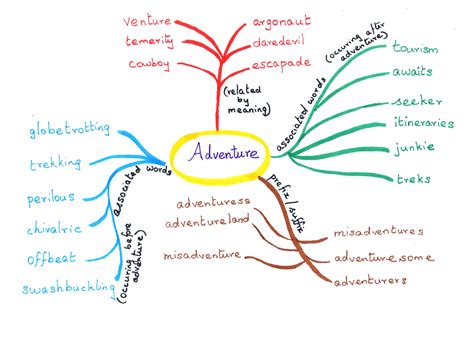 venture
temerity
cowboy
argonaut
daredevil
escapade
(related
by
meaning)
associated words
(occuring after
adventure)
tourism
awaits
seeker
itineraries
junkie
treks
Adventure
globetrotting
trekking
perilous
chivalric
offbeat
swashbuckling
associated words
(occuring before
adventure)
prefix/suffix
adventuress
adventureland
misadventure
misadventures
adventure,some
adventurers